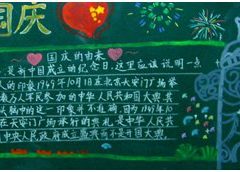 国庆
国庆的由来
是新中国成立的纪念日,这里应该说明一点
人的印象1949年10月1日在北京天安门广场举
数万人军民参加的中华人民共和国大典,共
头脑中的这一印象并不准确,因为1949年10
在天安门广场举行的典礼是中华人民共
中央人民政府成立盛典而不是开国大典。